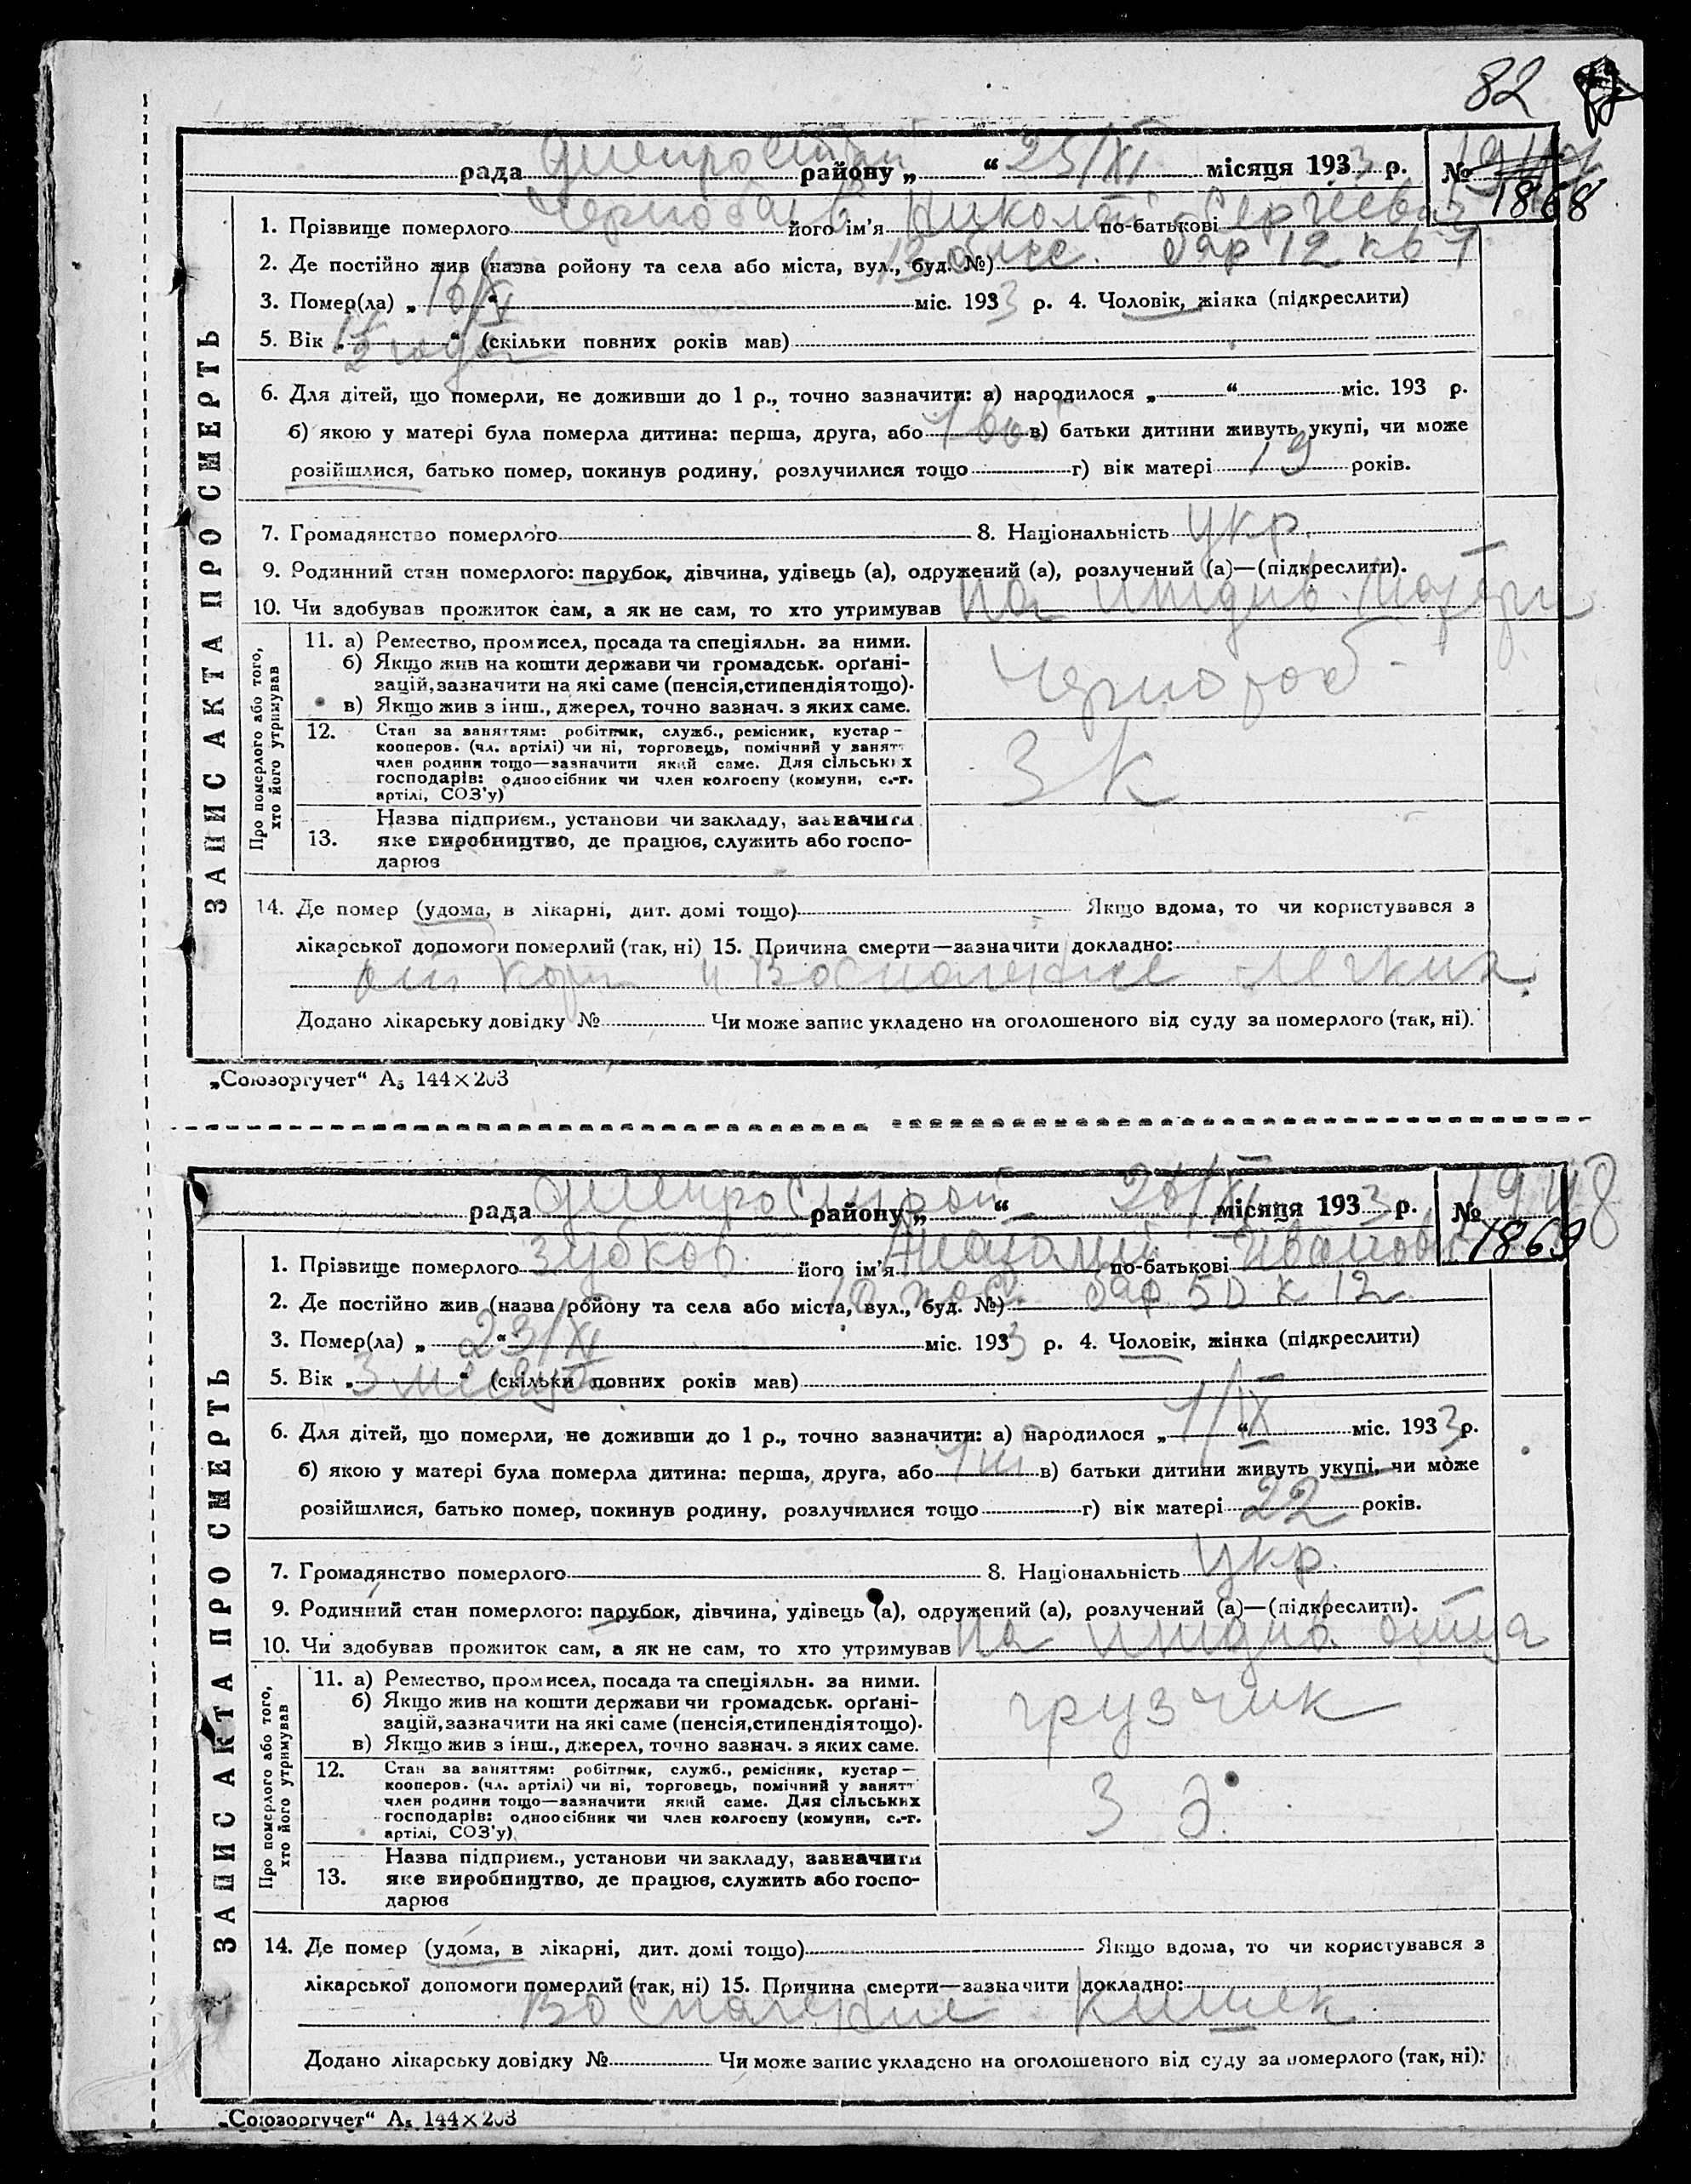 82
рада Днепрострой району „ “ 25/XI місяця 1933 р. № 1868
1. Прізвище померлого його ім'я Николай по-батькові Сергеевич
2. Де постійно жив (назва ройону та села або міста, вул., буд. №) бар 12 кв 7
3. Помер(ла) „ “ міс. 1933 р. 4. Чоловік, жінка (підкреслити)
5. Вік „ года “ (скільки повних років мав)
6. Для дітей, що померли, не доживши до 1 р., точно зазначити: а) народилося „ “ міс. 193 р.
б) якою у матері була померла дитина: перша, друга, або в) батьки дитини живуть укупі, чи може
розійшлися, батько помер, покинув родину, розлучилися тощо г) вік матері 19 років.
7. Громадянство померлого 8. Національність укр.
9. Родинний стан померлого: парубок, дівчина, удівець (а), одружений (а), розлучений (а)—(підкреслити).
10. Чи здобував прожиток сам, а як не сам, то хто утримував на иждив. матери
ЗАПИС АКТА ПРО СМЕРТЬ
Про померлого або того, хто його утримував
11. а) Ремество, промисел, посада та спеціяльн. за ними.
б) Якщо жив на кошти держави чи громадськ. орґані-
зацій, зазначити на які саме (пенсія, стипендія тощо).
в) Якщо жив з інш., джерел, точно зазнач. з яких саме.
Чернороб
12. Стан за заняттям: робітник, служб., ремісник, кустар—
кооперов. (чл. артілі) чи ні, торговець, помічний у занятт
член родини тощо—зазначити який саме. Для сільських
господарів: одноосібник чи член колгоспу (комуни, с.-г.
артілі, СОЗ'у)
З К
Назва підприєм., установи чи закладу, зазначити
13. яке виробництво, де працює, служить або госпо-
дарює
14. Де помер (удома, в лікарні, дит. домі тощо) Якщо вдома, то чи користувався з
лікарської допомоги померлий (так, ні) 15. Причина смерти—зазначити докладно:
от кори и Воспаление легких
Додано лікарську довідку № Чи може запис укладено на оголошеного від суду за померлого (так, ні).
„Союзоргучет“ А5 144×203
рада Днепрострой району „ “ 26/XI місяця 1933 р. № 1948
1869
1. Прізвище померлого Зубков його ім'я Анатолий по-батькові Иванович
2. Де постійно жив (назва ройону та села або міста, вул., буд. №) бар 50 к 12
3. Помер(ла) „ 23/XI “ міс. 1933 р. 4. Чоловік, жінка (підкреслити)
5. Вік „ 3 месяца “ (скільки повних років мав)
6. Для дітей, що померли, не доживши до 1 р., точно зазначити: а) народилося „ 1/IX “ міс. 1933 р.
б) якою у матері була померла дитина: перша, друга, або в) батьки дитини живуть укупі, чи може
розійшлися, батько помер, покинув родину, розлучилися тощо г) вік матері 22 років.
7. Громадянство померлого 8. Національність Укр.
9. Родинний стан померлого: парубок, дівчина, удівець (а), одружений (а), розлучений (а)—(підкреслити).
10. Чи здобував прожиток сам, а як не сам, то хто утримував на иждив. отца
ЗАПИС АКТА ПРО СМЕРТЬ
Про померлого або того, хто його утримував
11. а) Ремество, промисел, посада та спеціяльн. за ними.
б) Якщо жив на кошти держави чи громадськ. орґані-
зацій, зазначити на які саме (пенсія, стипендія тощо).
в) Якщо жив з інш., джерел, точно зазнач. з яких саме.
грузчик
12. Стан за заняттям: робітник, служб., ремісник, кустар—
кооперов. (чл. артілі) чи ні, торговець, помічний у занятт
член родини тощо—зазначити який саме. Для сільських
господарів: одноосібник чи член колгоспу (комуни, с.-г.
артілі, СОЗ'у)
З Э.
Назва підприєм., установи чи закладу, зазначити
13. яке виробництво, де працює, служить або госпо-
дарює
14. Де помер (удома, в лікарні, дит. домі тощо) Якщо вдома, то чи користувався з
лікарської допомоги померлий (так, ні) 15. Причина смерти—зазначити докладно:
Воспаление кишек
Додано лікарську довідку № Чи може запис укладено на оголошеного від суду за померлого (так, ні).
„Союзоргучет“ А5 144×203